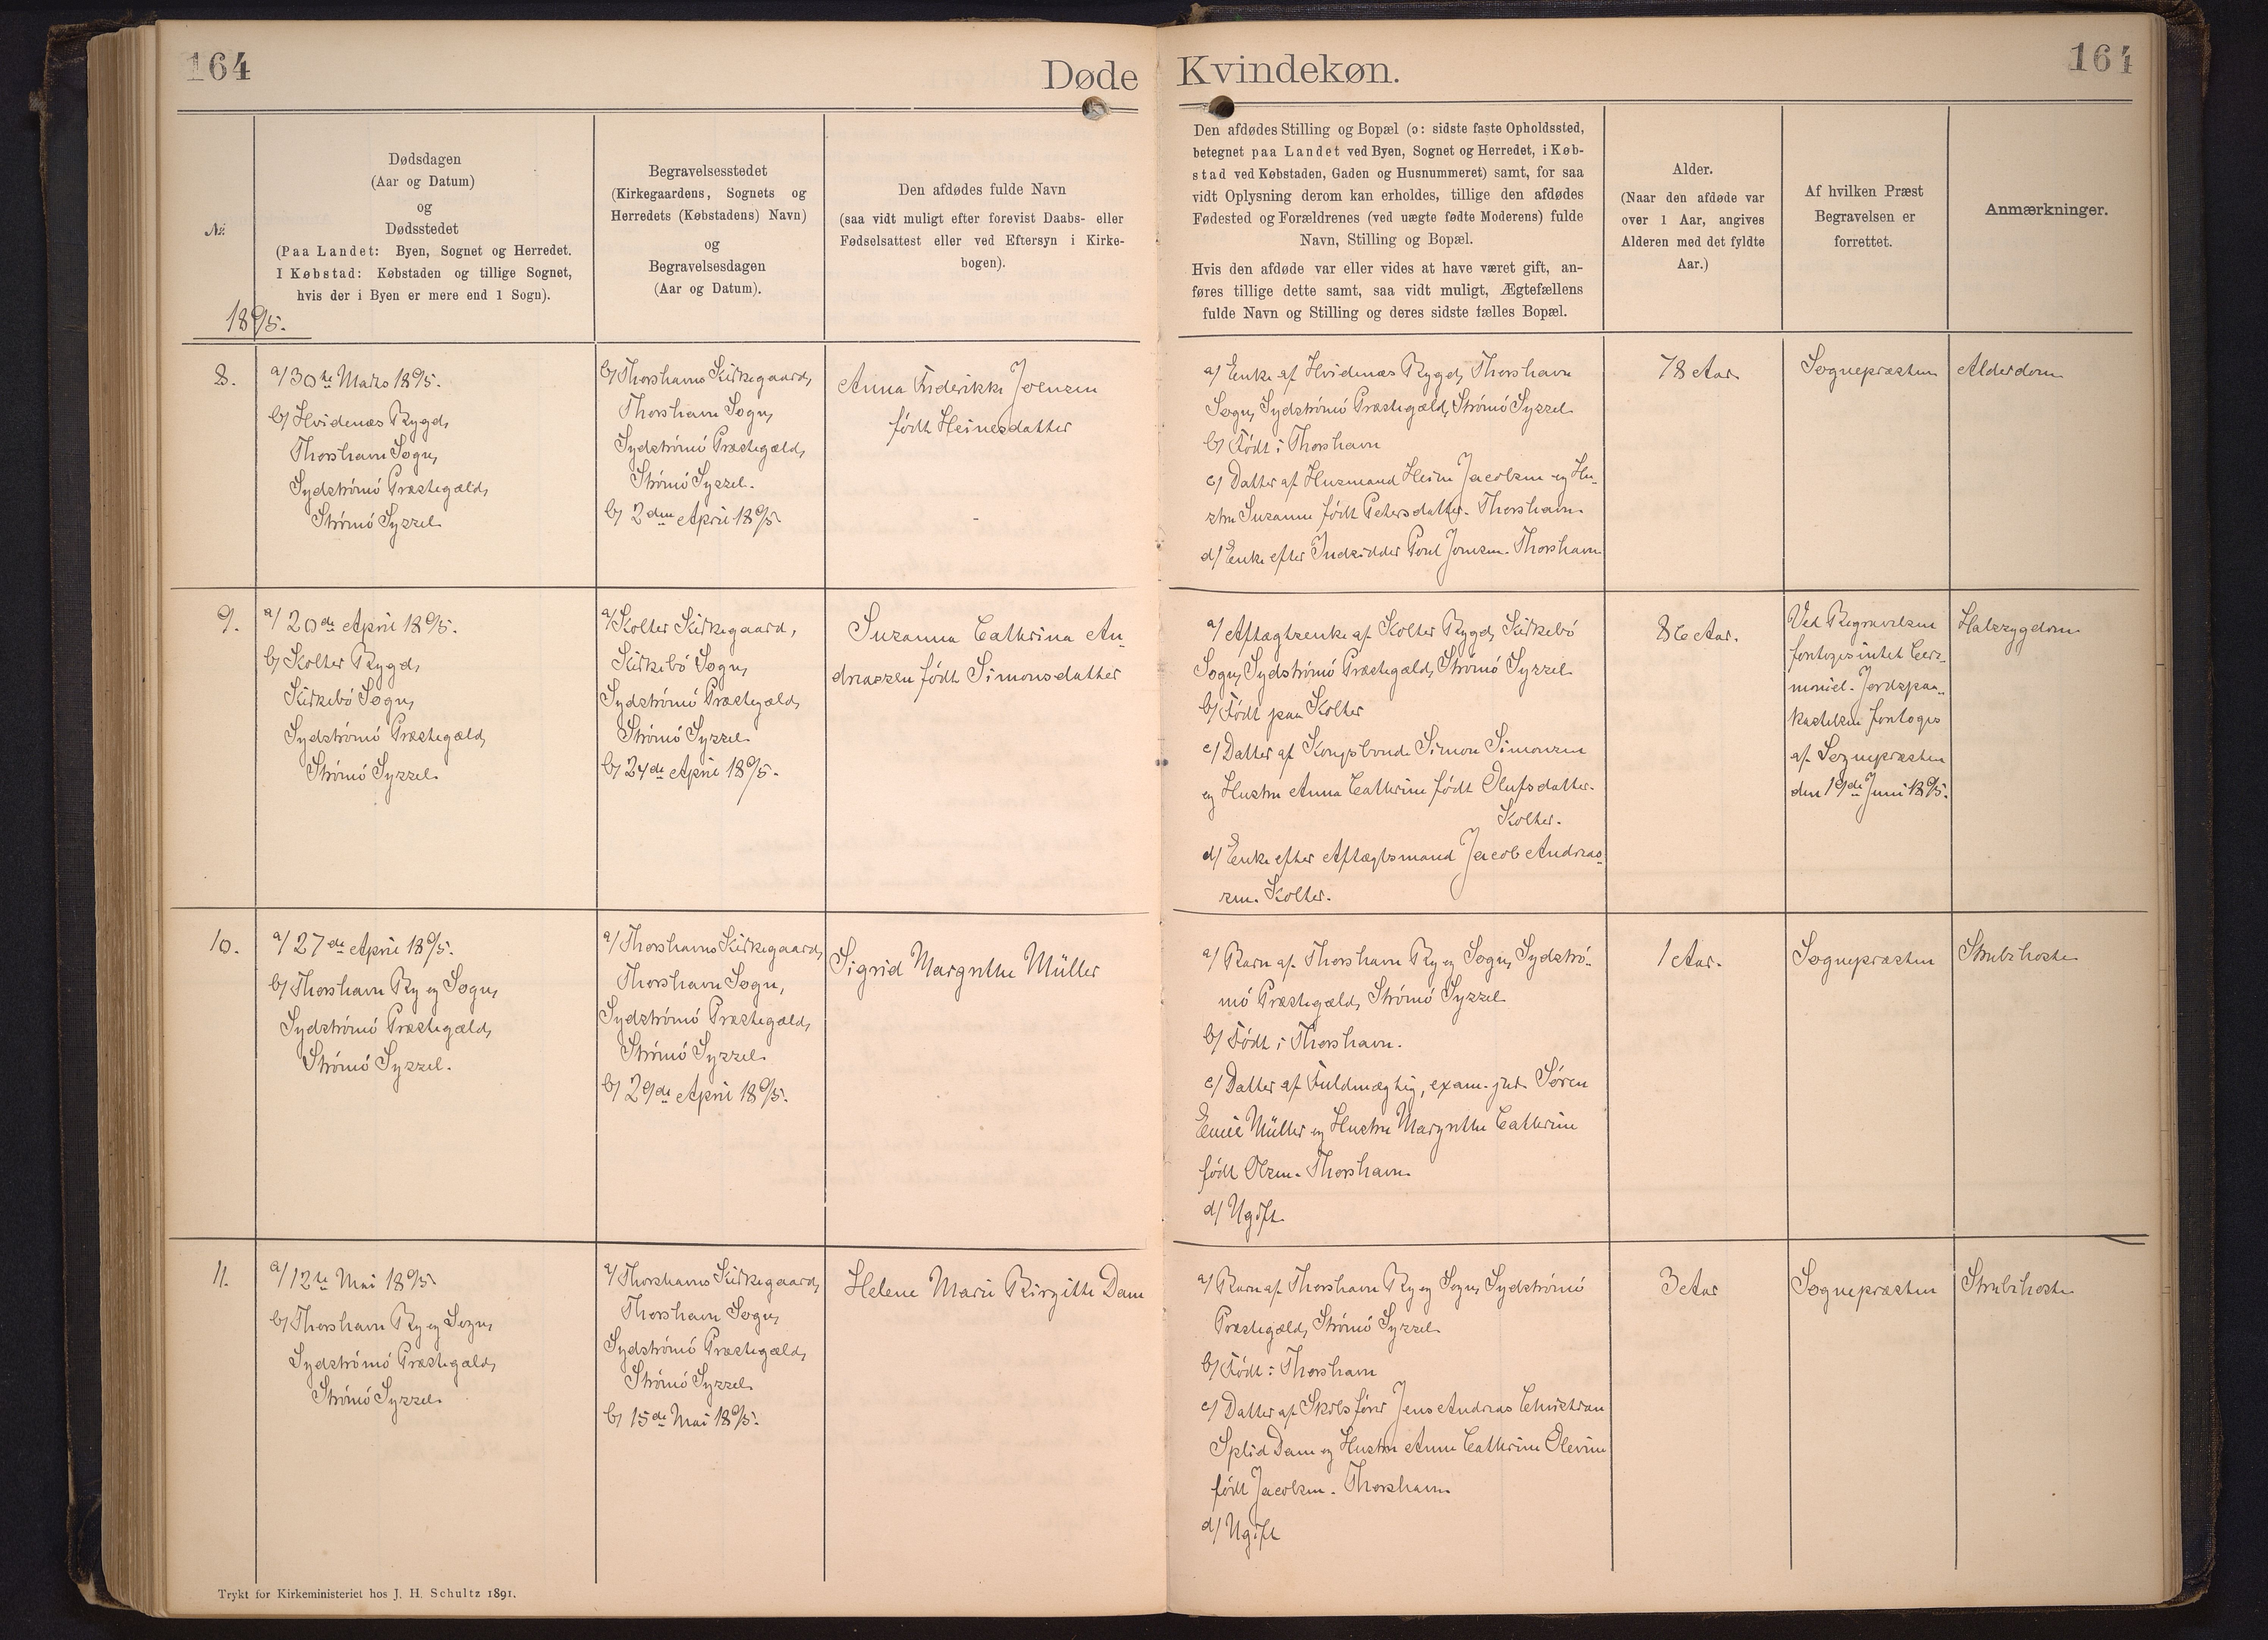 164
Døde
Kvindekøn.
164
№
Dødsdagen
(Aar og Datum)
og
Dødsstedet
(Paa Landet: Byen, Sognet og Herredet.
I Købstad: Købstaden og tillige Sognet,
hvis der i Byen er mere end 1 Sogn).
Begravelsesstedet
(Kirkegaardens, Sognets og
Herredets (Købstadens) Navn)
og
Begravelsesdagen
(Aar og Datum).
Den afdødes fulde Navn
(saa vidt muligt efter forevist Daabs- eller
Fødselsattest eller ved Eftersyn i Kirke-
bogen).
Den afdødes Stilling og Bopæl (ɔ: sidste faste Opholdssted,
betegnet paa Landet ved Byen, Sognet og Herredet, i Køb-
stad ved Købstaden, Gaden og Husnummeret) samt, for saa
vidt Oplysning derom kan erholdes, tillige den afdødes
Fødested og Forældrenes (ved uægte fødte Moderens) fulde
Navn, Stilling og Bopæl.
Hvis den afdøde var eller vides at have været gift, an-
føres tillige dette samt, saa vidt muligt, Ægtefællens
fulde Navn og Stilling og deres sidste fælles Bopæl.
Alder.
(Naar den afdøde var
over 1 Aar, angives
Alderen med det fyldte
Aar.)
Af hvilken Præst
Begravelsen er
forrettet.
Anmærkninger.
1895.
8.
a/ 30te Marts 1895.
b/ Hvidenæs Bygd,
Thorshavn Sogn,
Sydstrømø Præstegæld,
Strømø Syssel
b/ Thorshavns Kirkegaard,
Thorshavn Sogn,
Sydstrømø Præstegæld,
Strømø Syssel.
b/ 2den April 1895
Anna Frederikke Joensen
født Heinesdatter
a/ Enke af Hvidenæs Bygd, Thorshavn
Sogn, Sydstrømø Præstegæld, Strømø Syssel
b/ Født i Thorshavn
c/ Datter af Husmand Heine Jacobsen og Hu-
stru Susanne født Petersdatter. Thorshavn.
d/ Enke efter Indsidder Poul Joensen. Thorshavn
78 Aar
Sognepræsten
Alderdom
9.
a/ 20de April 1895.
b/ Kolter Bygd,
Kirkebø Sogn,
Sydstrømø Præstegæld,
Strømø Syssel.
a/ Kolter Kirkegaard,
Kirkebø Sogn,
Sydstrømø Præstegæld,
Strømø Syssel
b/ 24de April 1895.
Susanna Cathrina An-
dreassen født Simonsdatter
a/ Aftægtsenke af Kolter Bygd, Kirkebø
Sogn, Sydstrømø Præstegæld, Strømø Syssel
b/ Født paa Kolter
c/ Datter af Kongsbonde Simon Simonsen
og Hustru Anna Cathrine født Olufsdatter.
Kolter.
d/ Enke efter Aftægtsmand Jacob Andreas-
sen. Kolter.
86 Aar.
Ved Begravelsen
foretoges intet Cere-
moniel. Jordspaa-
kastelsen foretoges
af Sognepræsten
den 19de Juni 1895.
Halssygdom
10.
a/ 27de April 1895.
b/ Thorshavn By og Sogn,
Sydstrømø Præstegæld,
Strømø Syssel.
a/ Thorshavns Kirkegaard,
Thorshavn Sogn,
Sydstrømø Præstegæld,
Strømø Syssel
b/ 29de April 1895.
Sigrid Margrethe Müller
a/ Barn af Thorshavn By og Sogn, Sydstrø-
mø Præstegæld, Strømø Syssel
b/ Født i Thorshavn.
c/ Datter af Fuldmægtig, exam. jur. Søren
Emil Müller og Hustru Margrethe Cathrine
født Olsen. Thorshavn.
d/ Ugift
1 Aar.
Sognepræsten
Strubehoste
11.
a/ 12te Mai 1895
b/ Thorshavn By og Sogn,
Sydstrømø Præstegæld,
Strømø Syssel
a/ Thorshavns Kirkegaard,
Thorshavn Sogn,
Sydstrømø Præstegæld,
Strømø Syssel
b/ 15de Mai 1895.
Helene Marie Birgitte Dam
a/ Barn af Thorshavn By og Sogn, Sydstrømø
Præstegæld, Strømø Syssel
b/ Født i Thorshavn
c/ Datter af Skibsfører Jens Andreas Christian
Splid Dam og Hustru Anne Cathrine Olevine
født Jacobsen. Thorshavn
d/ Ugift
3 Aar
Sognepræsten
Strubehoste
Trykt for Kirkeministeriet hos J. H. Schultz 1891.